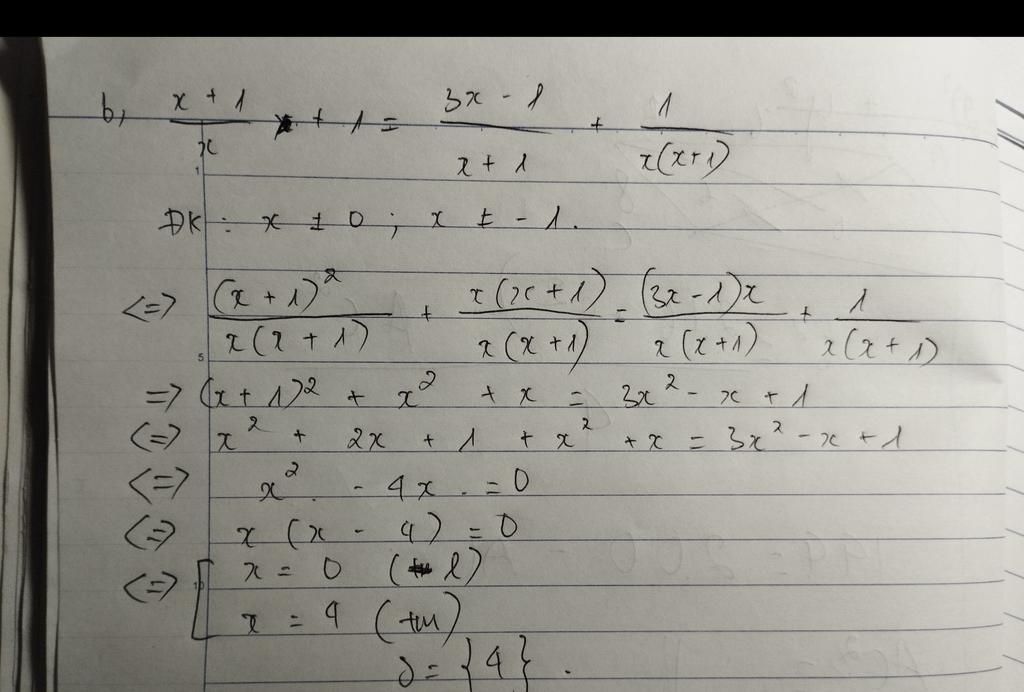 b, \frac{x + 1}{x} + 1 = \frac{3x - 1}{x + 1} + \frac{1}{x(x+1)}
ĐK : x ≠ 0 ; x ≠ - 1.
<=> \frac{(x + 1)^2}{x(x + 1)} + \frac{x(x + 1)}{x(x + 1)} = \frac{(3x - 1)x}{x(x + 1)} + \frac{1}{x(x + 1)}
=> (x + 1)^2 + x^2 + x = 3x^2 - x + 1
<=> x^2 + 2x + 1 + x^2 + x = 3x^2 - x + 1
<=> x^2 - 4x = 0
<=> x (x - 4) = 0
<=> [ x = 0 (l)
x = 4 (tm)
S = {4}.